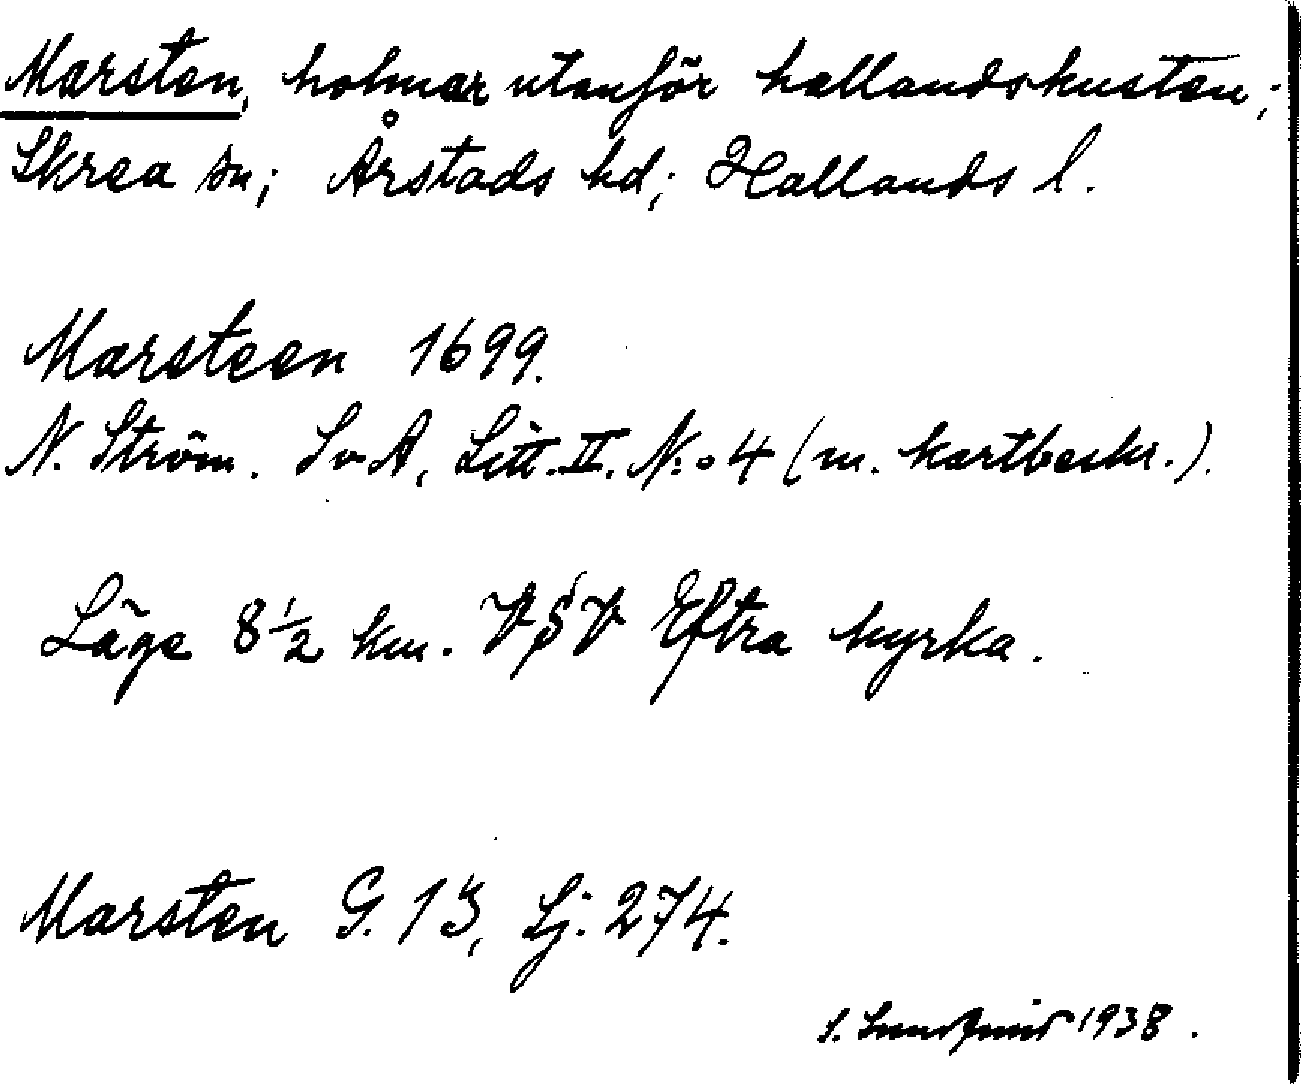 Marsten, holmar utanför hallandskusten;
Skrea sn; Årstads hd; Hallands l.
Marsteen 1699.
N. Ström. SvA, Litt. II. N:o 4 (m. kartbeskr.).
Läge 8 1/2 km. VSV Eftra kyrka.
Marsten G. 13, Lj. 274.
S. 1938.